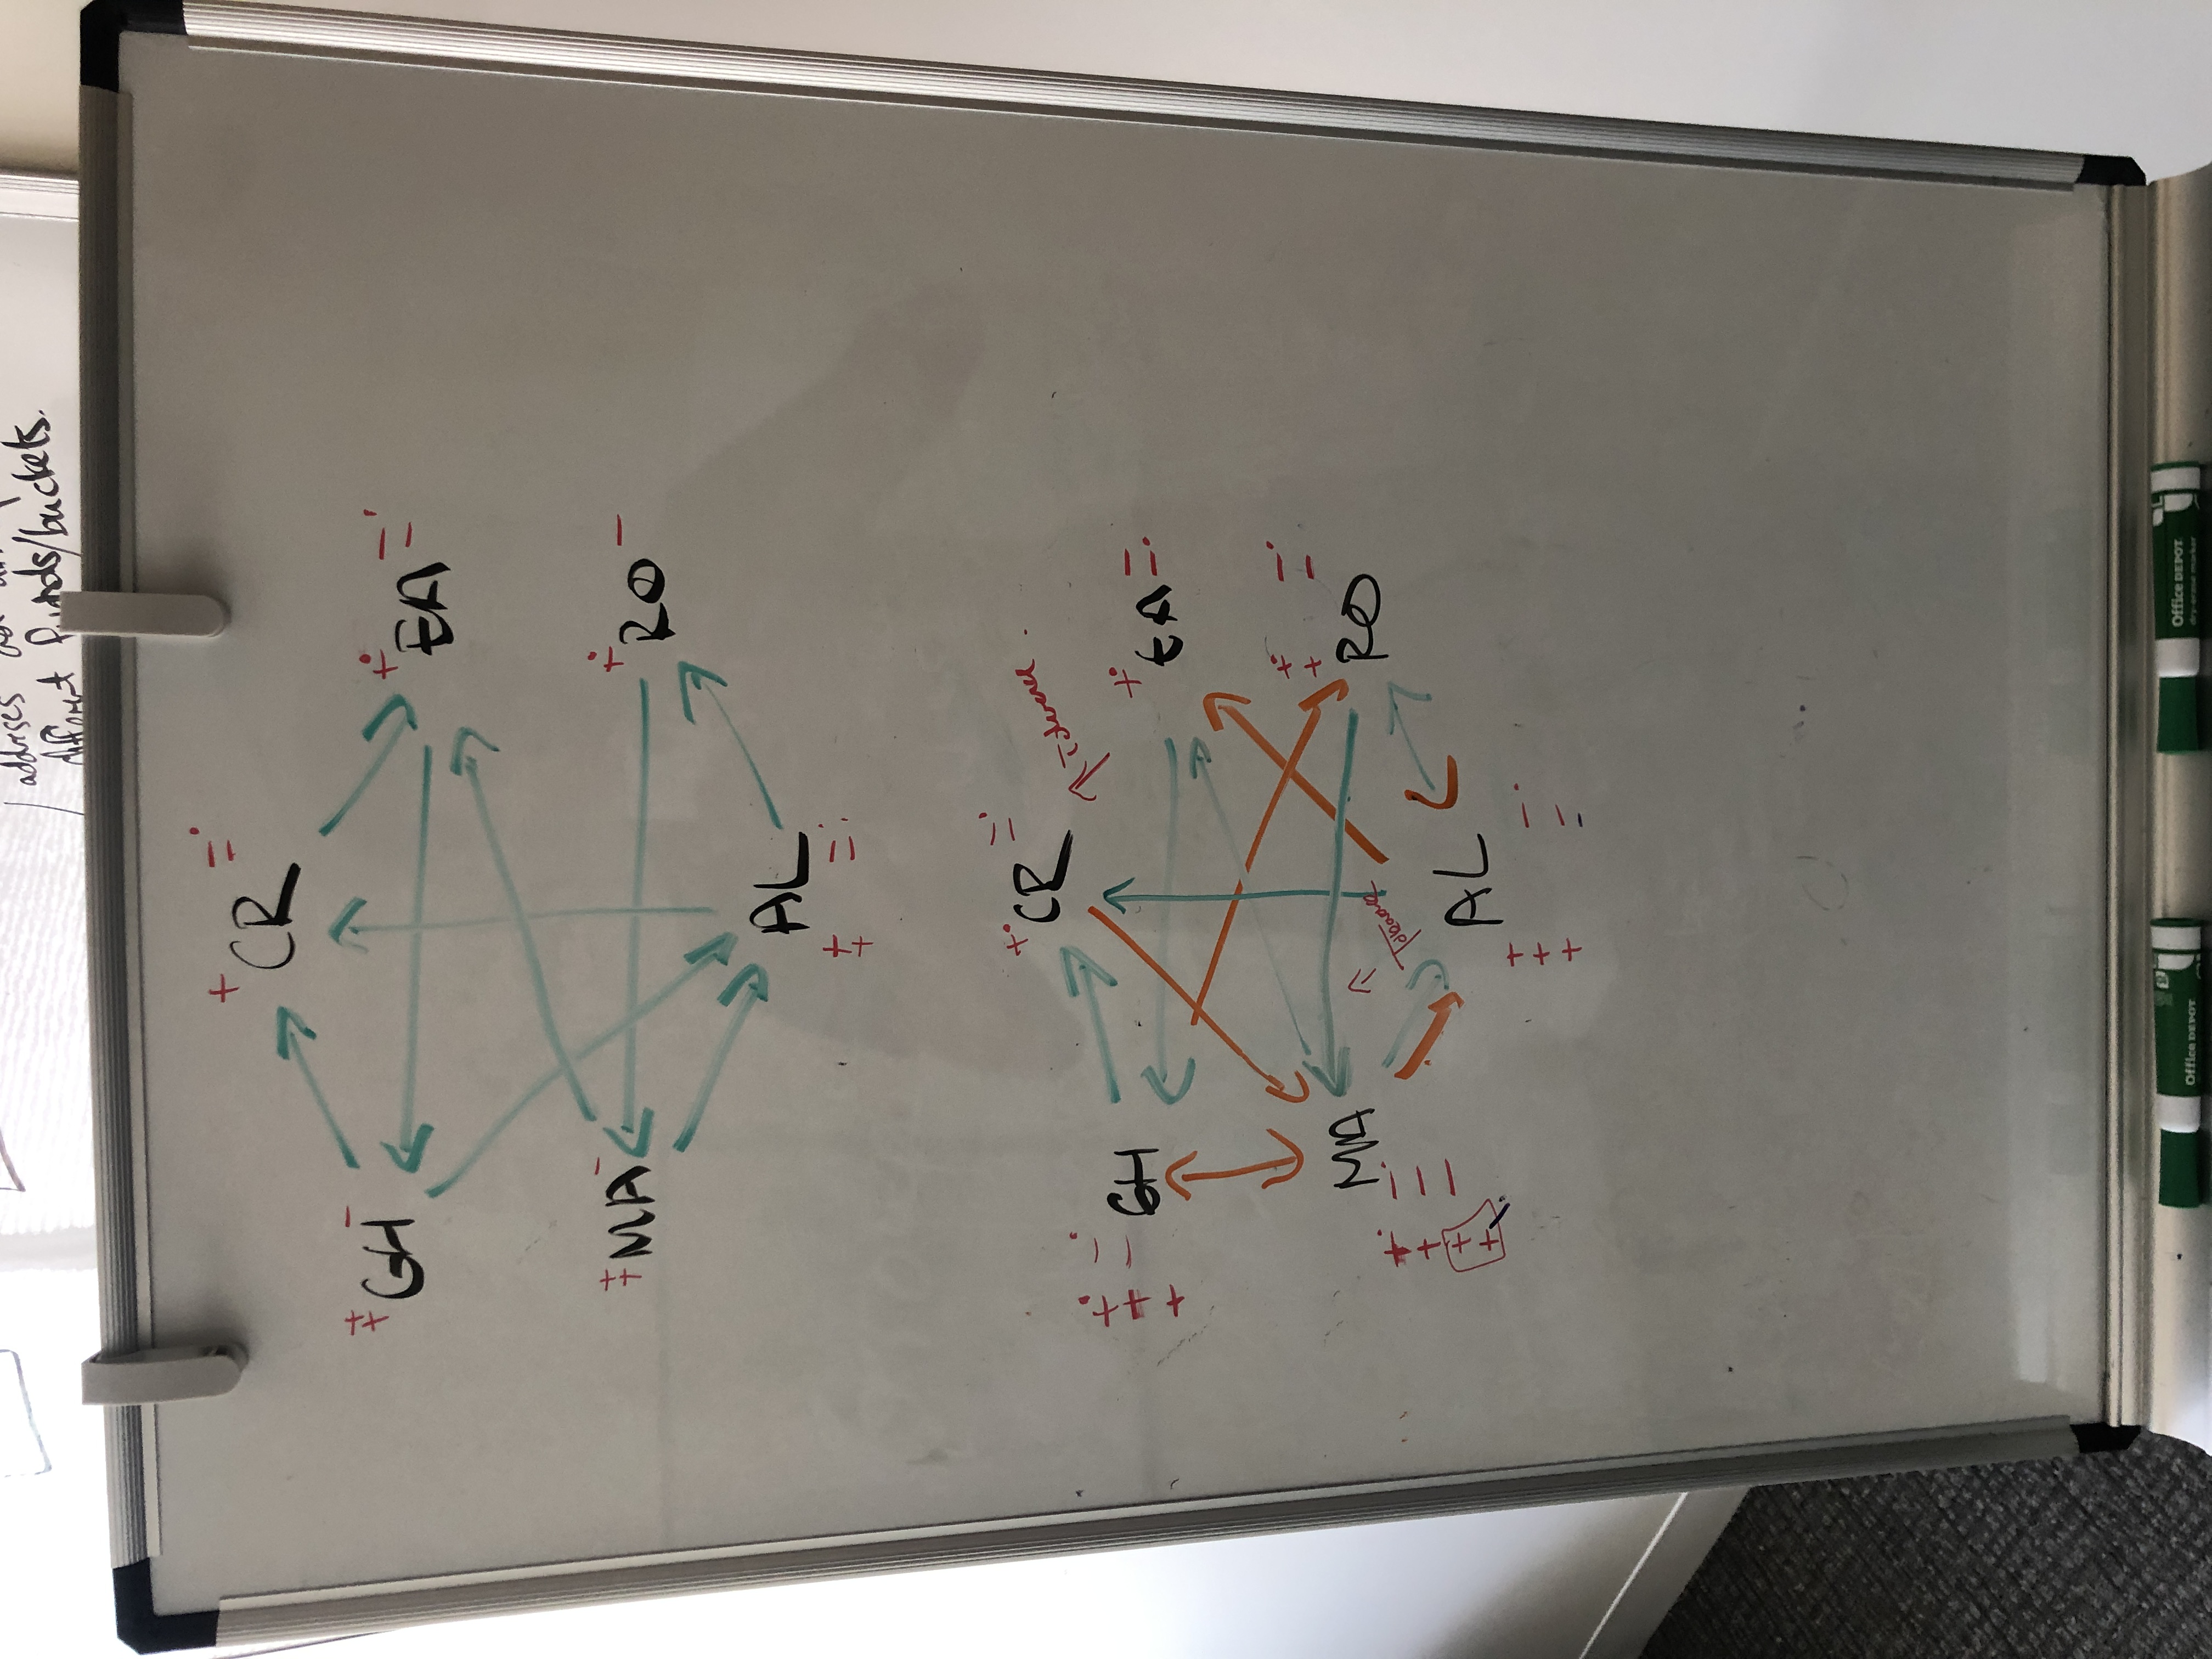 addresses
different funds/buckets.
+ CR =
++ GH -
+ EA =
++ MA -
+ RO -
AL
++ =
+ CR =
↑ Tolerance
+++ GH --
+ EA =
++ --
MA RO
↑ Tolerance
++++ ---
AL
+++ ---
Office DEPOT
Office DEPOT
dry-erase marker